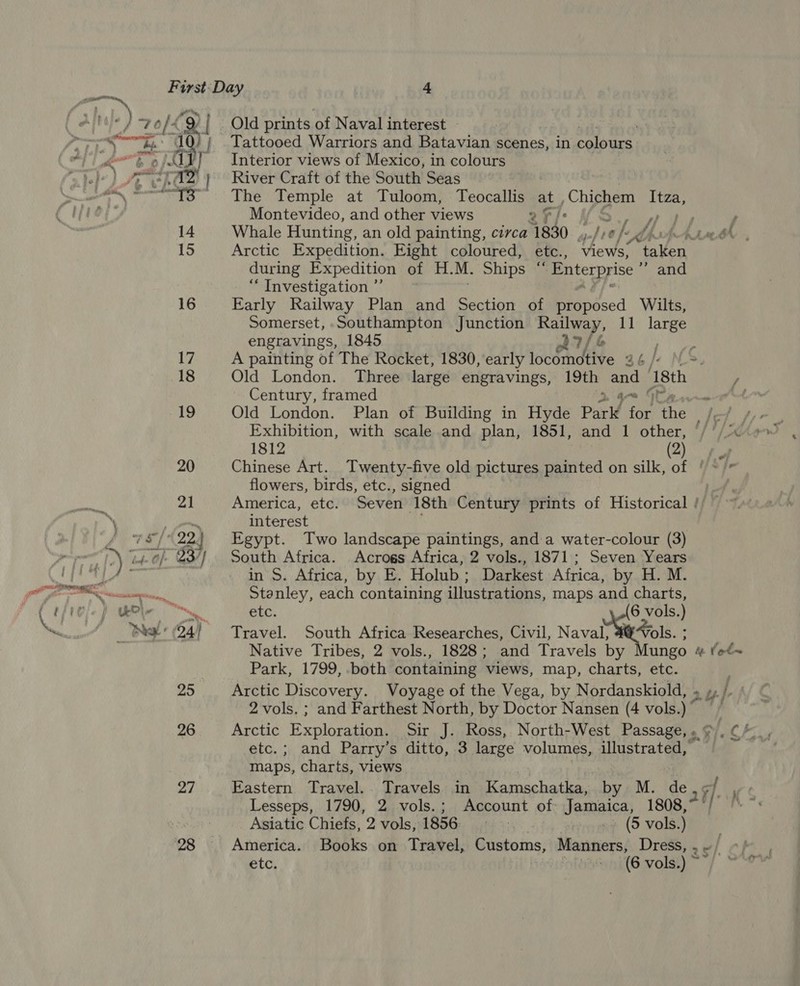 First Day 4
9 Old prints of Naval interest
10 Tattooed Warriors and Batavian scenes, in colours
11 Interior views of Mexico, in colours
12 River Craft of the South Seas
13 The Temple at Tuloom, Teocallis at Chichem Itza,
Montevideo, and other views
14 Whale Hunting, an old painting, circa 1830
15 Arctic Expedition. Eight coloured, etc., views, taken
during Expedition of H.M. Ships “Enterprise” and
“Investigation”
16 Early Railway Plan and Section of proposed Wilts,
Somerset, Southampton Junction Railway, 11 large
engravings, 1845 27/6
17 A painting of The Rocket, 1830, early locomotive
18 Old London. Three large engravings, 19th and 18th
Century, framed
19 Old London. Plan of Building in Hyde Park for the
Exhibition, with scale and plan, 1851, and 1 other,
1812 (2)
20 Chinese Art. Twenty-five old pictures painted on silk, of
flowers, birds, etc., signed
21 America, etc. Seven 18th Century prints of Historical
interest
22 Egypt. Two landscape paintings, and a water-colour (3)
23 South Africa. Across Africa, 2 vols., 1871; Seven Years
in S. Africa, by E. Holub; Darkest Africa, by H. M.
Stanley, each containing illustrations, maps and charts,
etc. (6 vols.)
24 Travel. South Africa Researches, Civil, Naval, vols.;
Native Tribes, 2 vols., 1828; and Travels by Mungo
Park, 1799, both containing views, map, charts, etc.
25 Arctic Discovery. Voyage of the Vega, by Nordanskiold,
2 vols.; and Farthest North, by Doctor Nansen (4 vols.)
26 Arctic Exploration. Sir J. Ross, North-West Passage,
etc.; and Parry's ditto, 3 large volumes, illustrated,
maps, charts, views
27 Eastern Travel. Travels in Kamschatka, by M. de
Lesseps, 1790, 2 vols.; Account of Jamaica, 1808,
Asiatic Chiefs, 2 vols, 1856 (5 vols.)
28 America. Books on Travel, Customs, Manners, Dress,
etc. (6 vols.)